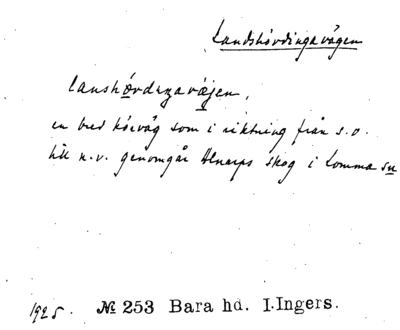 Landshövdingavägen
lanshövdingavæjen,
en bred körväg som i riktning från s.o.
till n.v. genomgår Alnarps skog i Lomma sn
1925. № 253 Bara hd. I.Ingers.